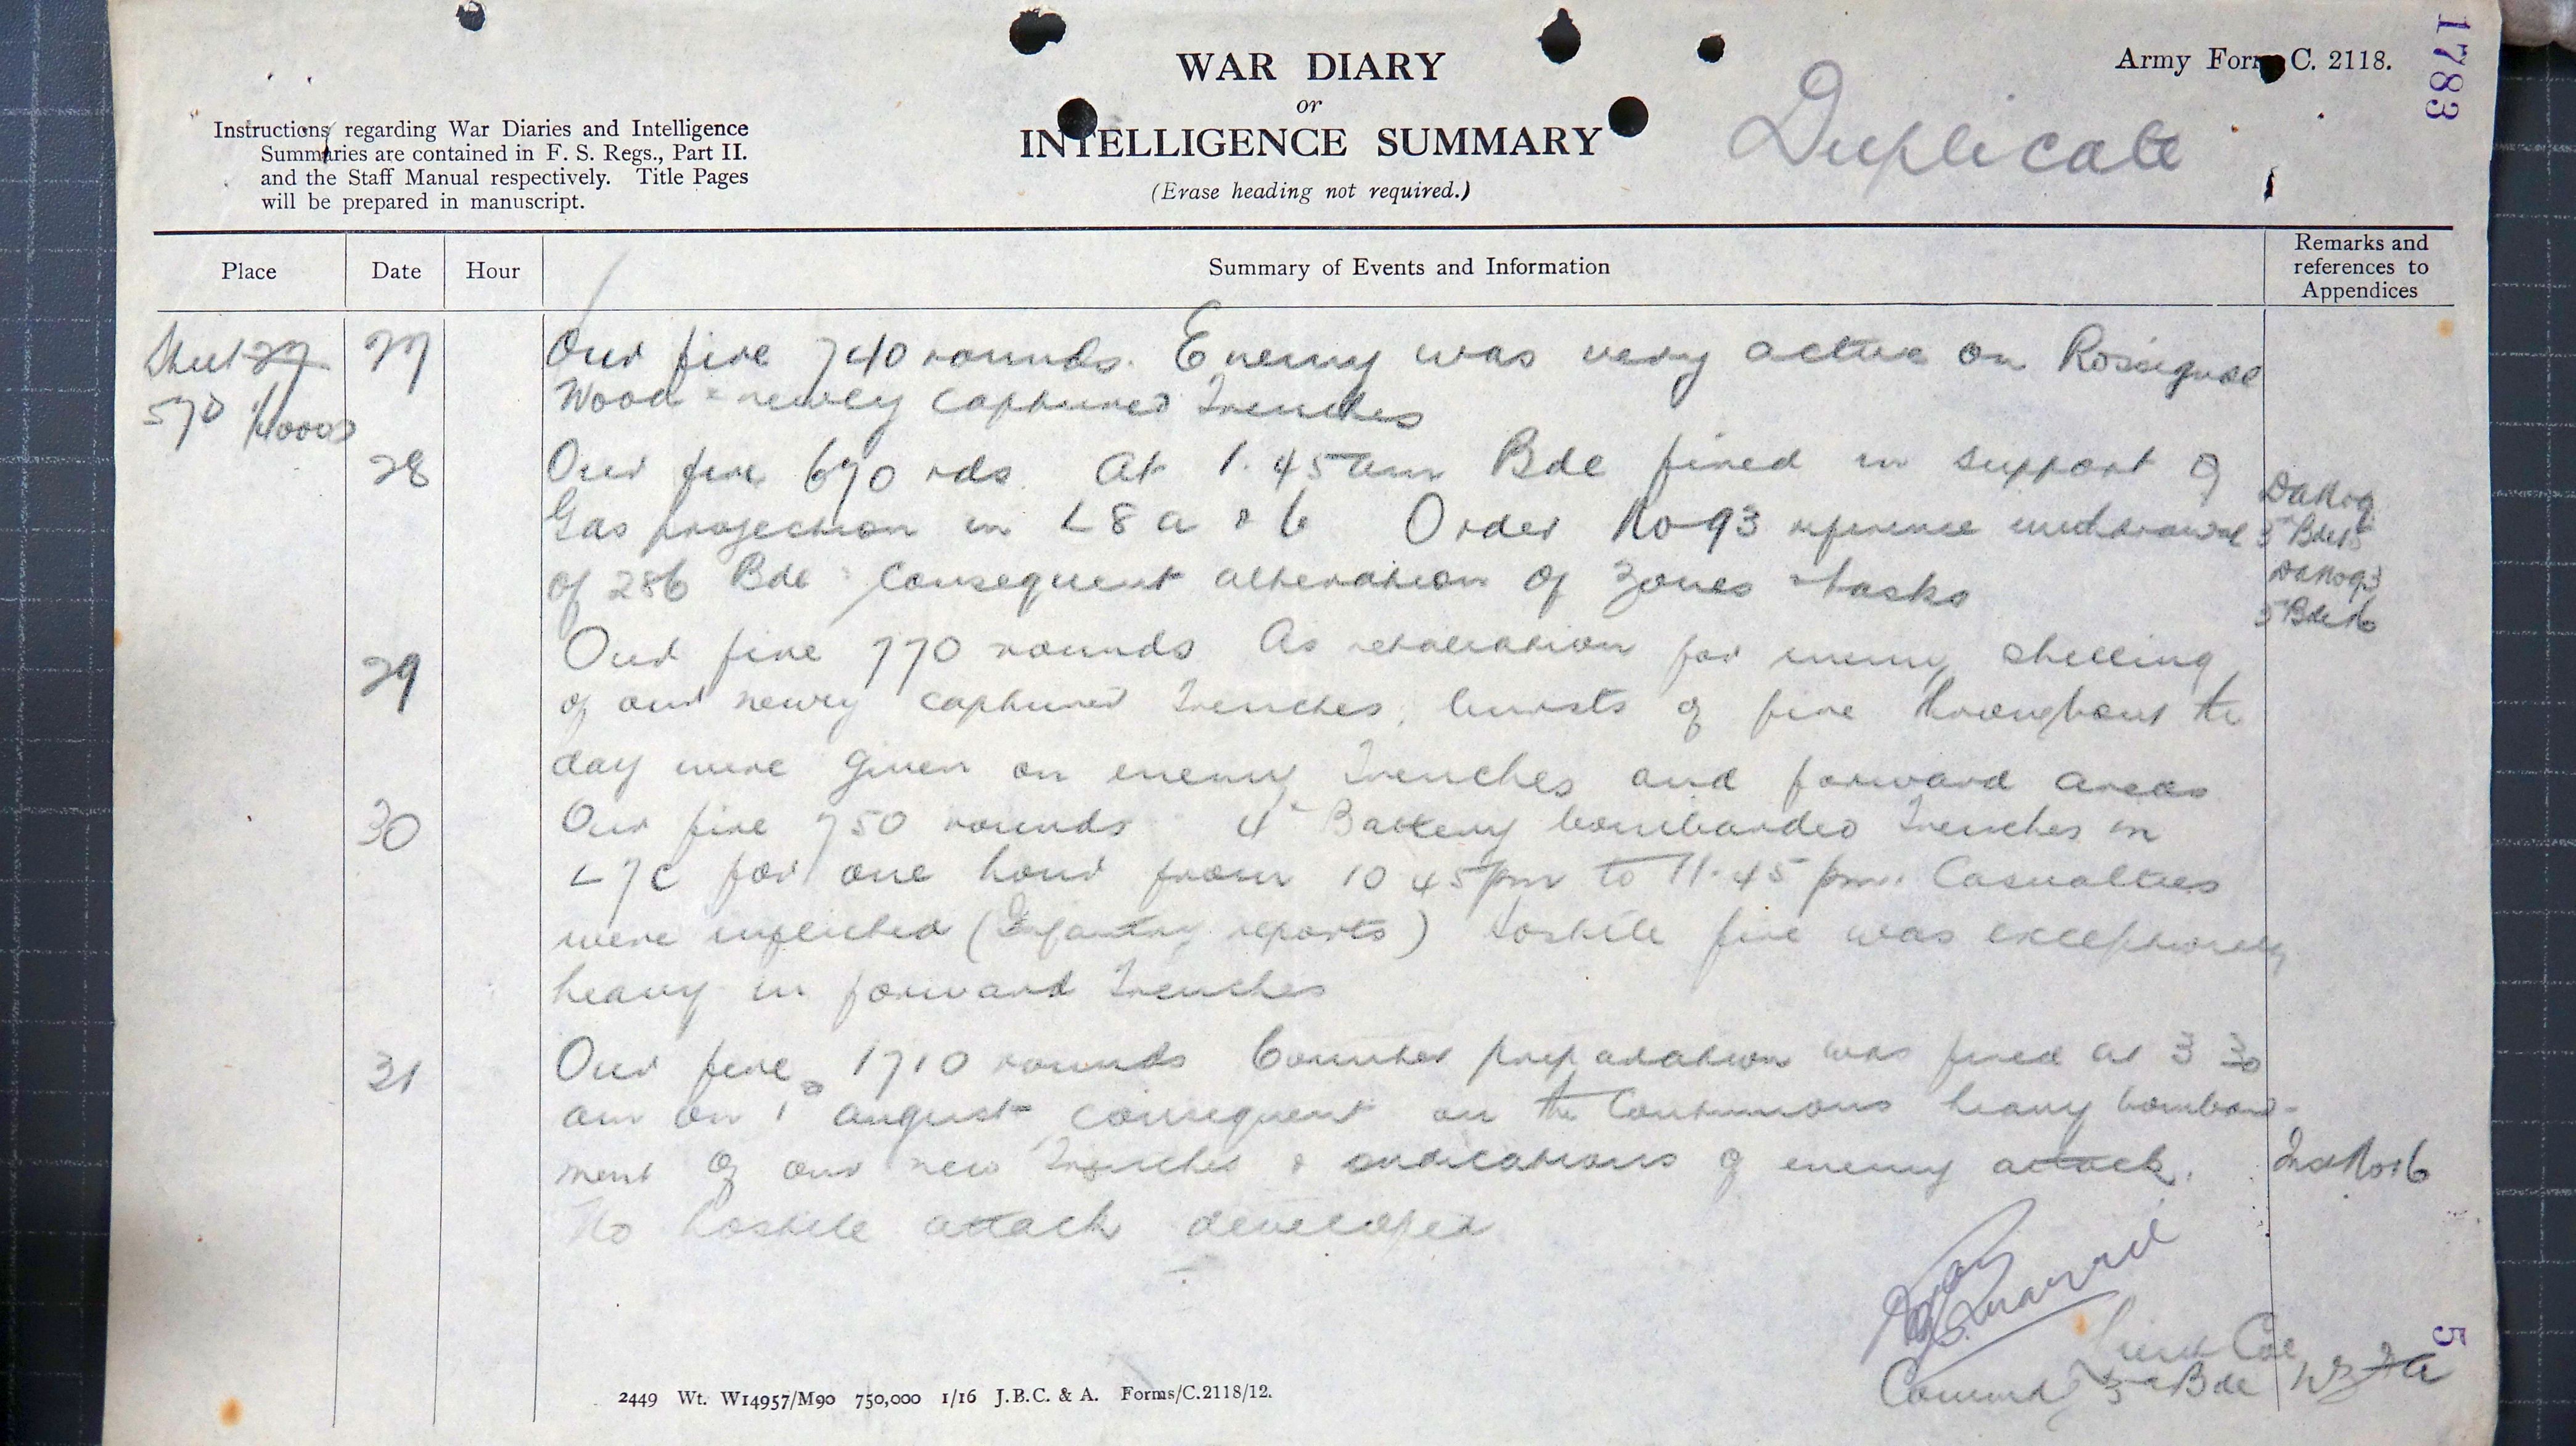 1783
Army Form C. 2118.
WAR DIARY
or
INTELLIGENCE SUMMARY
(Erase heading not required.)
Duplicate
Instructions regarding War Diaries and Intelligence
Summaries are contained in F. S. Regs., Part II.
and the Staff Manual respectively. Title Pages
will be prepared in manuscript.
Place
Date
Hour
Summary of Events and Information
Remarks and
references to
Appendices
Sheet 29
57D 1/40000
27
Our fire 740 rounds. Enemy was very active on Rossignol
Wood & newly captured Trenches
28
Our fire 670 rds. At 1.45 am Bde fired in support of
Gas projection in L8 a & b Order No 93 reference withdrawal
of 286 Bde & consequent alteration of Zones & tasks
5 Bde 15
5 Bde 16
29
Our fire 770 rounds As retaliation for enemy shelling
of our newly captured Trenches, bursts of fire throughout the
day were given on enemy Trenches and forward areas
30
Our fire 750 rounds 4th Battery bombarded Trenches in
L7C for one hour from 10 45 pm to 11.45 pm. Casualties
were inflicted (Infantry reports) Hostile fire was exceptionally
heavy in forward Trenches
31
Our fire 1710 rounds Counter preparation was fired at 3 30
am on 1st August consequent on the continuous heavy bombard-
ment of our new Trenches & indications of enemy attack.
No hostile attack developed
Lieut Col
Command 3rd Bde NZFA
5
2449 Wt. W14957/M90 750,000 1/16 J.B.C. & A. Forms/C.2118/12.